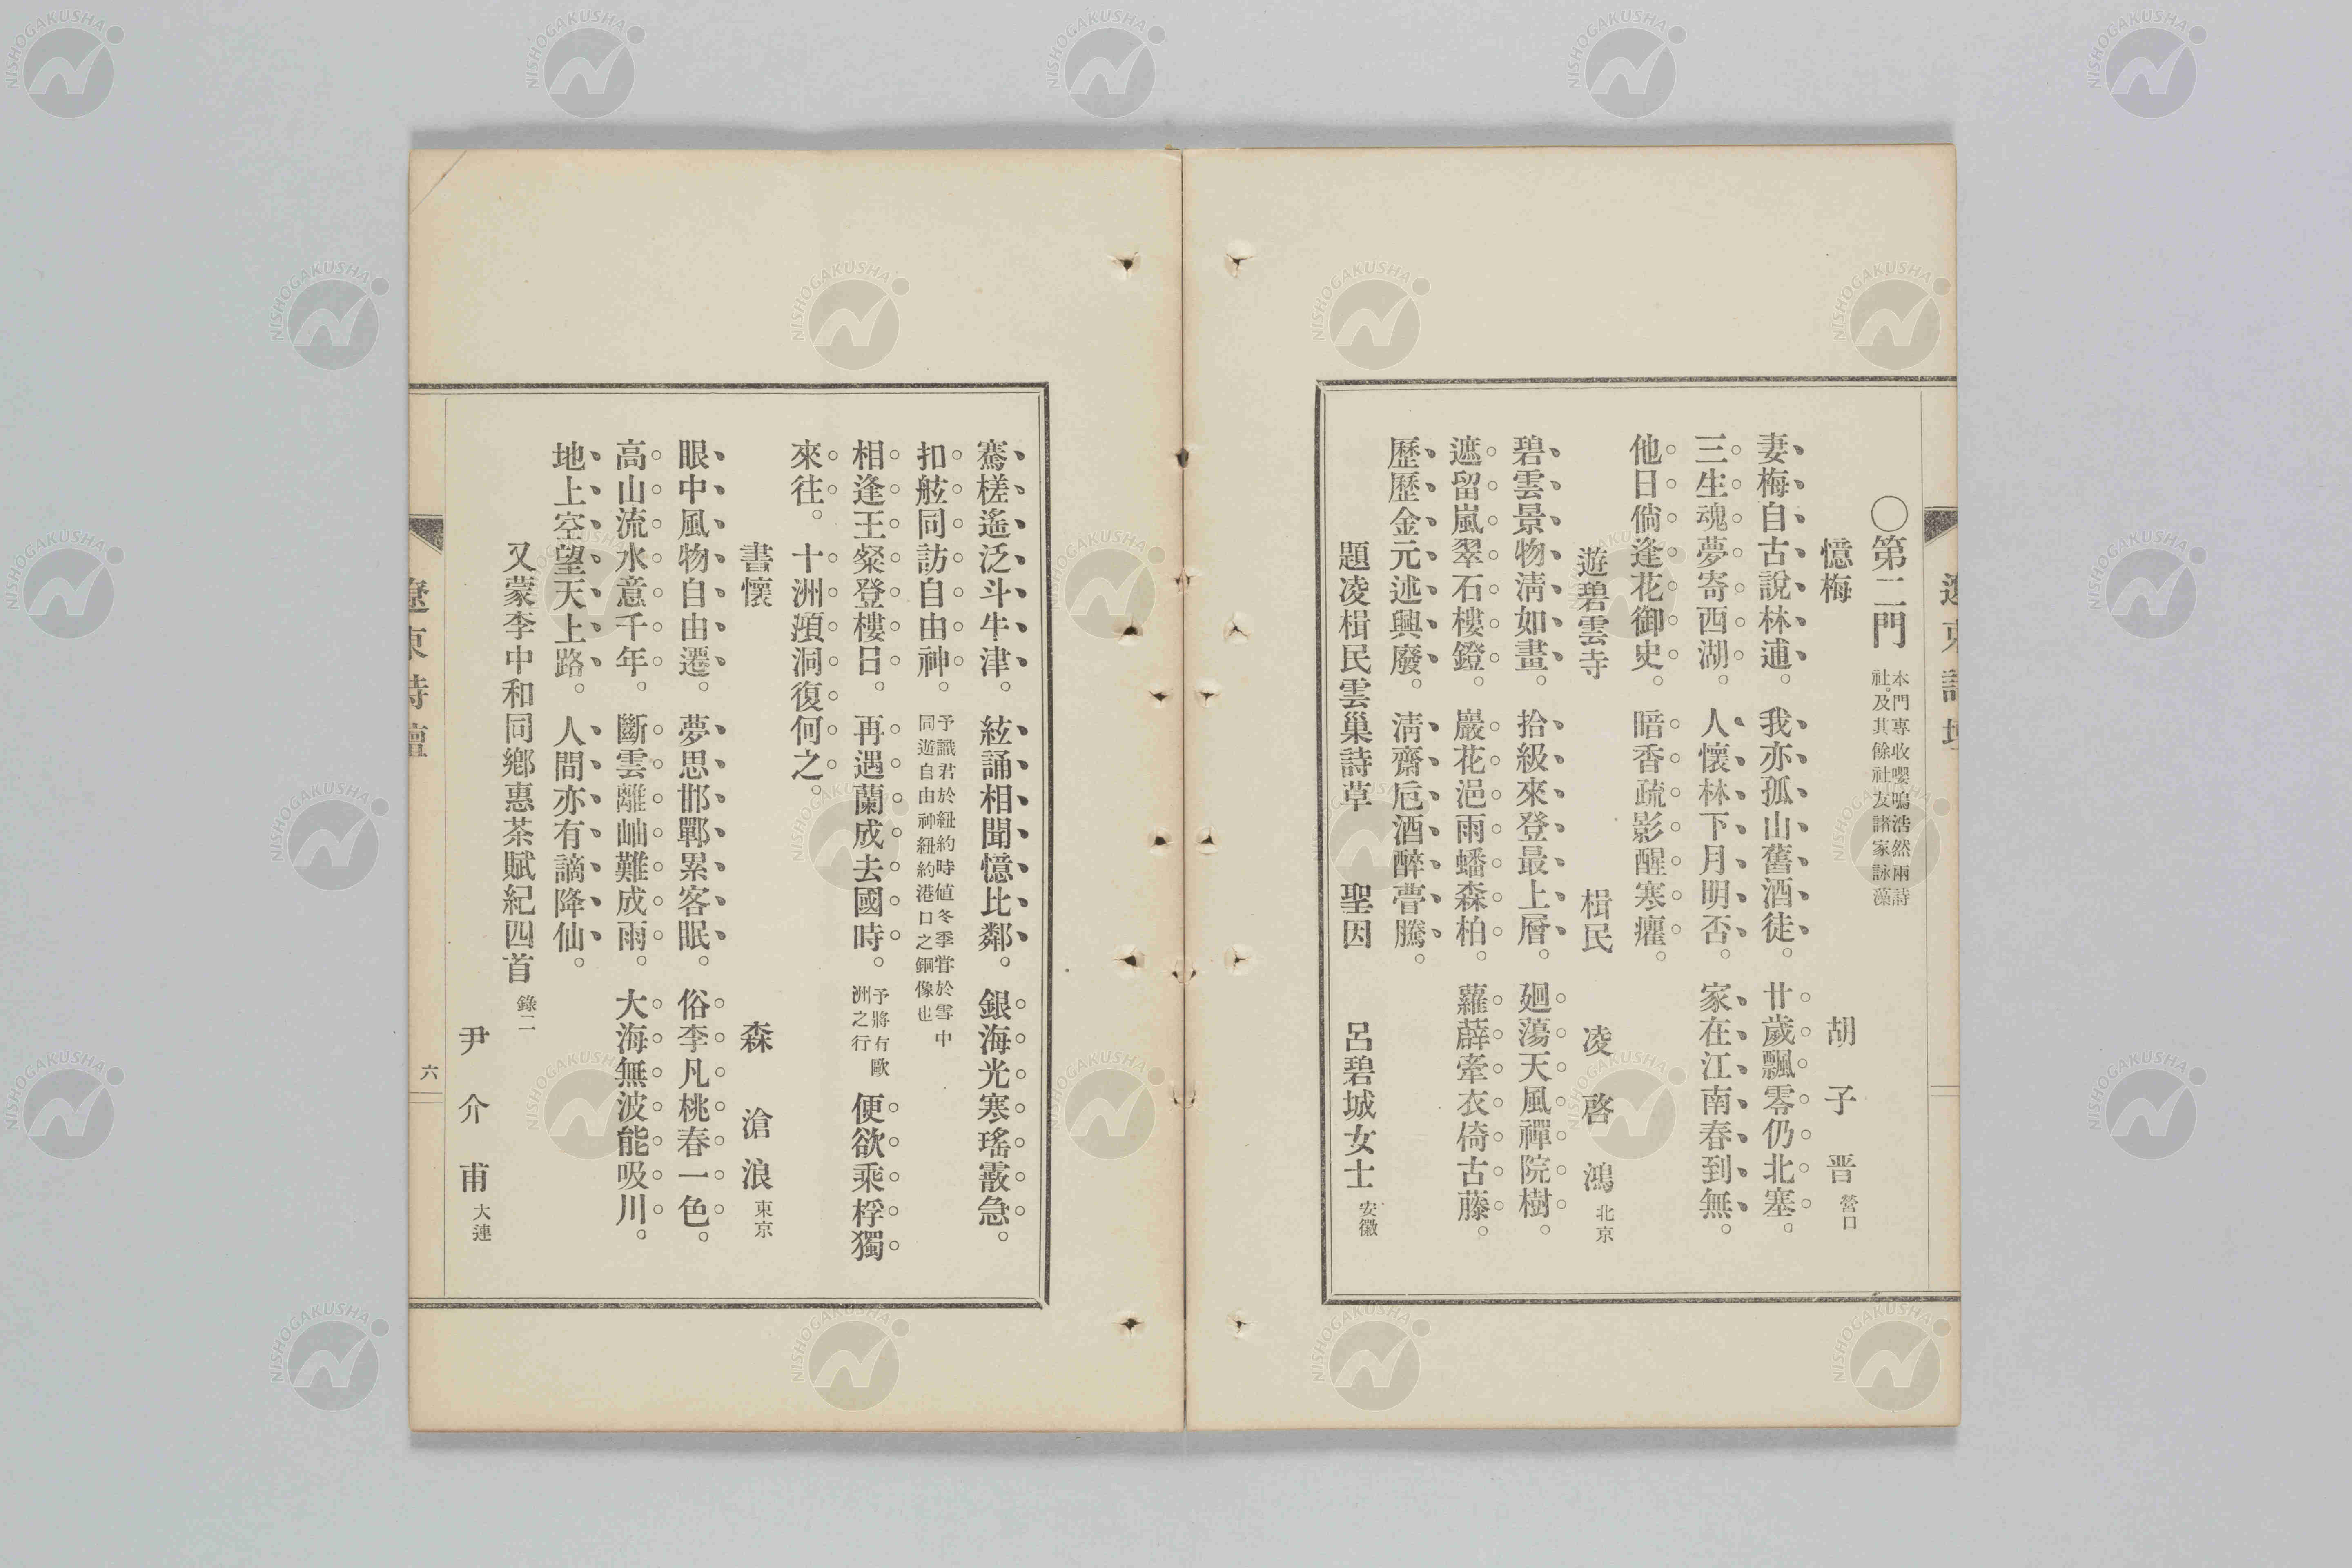 遼東詩壇
○第二門 本門專收嚶鳴浩然兩詩社。及其餘社友諸家詠藻
憶梅 胡子晋 營口
妻梅自古說林逋。我亦孤山舊酒徒。廿歲飄零仍北塞。
三生魂夢寄西湖。人懷林下月明否。家在江南春到無。
他日倘逢花御史。暗香疏影醒寒癯。
遊碧雲寺 楫民 凌啓鴻 北京
碧雲景物淸如畫。拾級來登最上層。廻蕩天風禪院樹。
遮留嵐翠石樓鐙。巖花浥雨蟠森柏。蘿薜牽衣倚古藤。
歷歷金元述興廢。淸齋巵酒醉瞢騰。
題凌楫民雲巢詩草 聖因 呂碧城女士 安徽
鶱槎遙泛斗牛津。絃誦相聞憶比鄰。銀海光寒瑤霰急。
扣舷同訪自由神。予識君於紐約時値冬季甞於雪中同遊自由神紐約港口之銅像也
相逢王粲登樓日。再遇蘭成去國時。予將有歐洲之行 便欲乘桴獨
來往。十洲澒洞復何之。
書懷 森滄浪 東京
眼中風物自由遷。夢思邯鄲累客眠。俗李凡桃春一色。
高山流水意千年。斷雲離岫難成雨。大海無波能吸川。
地上空望天上路。人間亦有謫降仙。
又蒙李中和同鄕惠茶賦紀四首 錄二
尹介甫 大連
遼東詩壇 六
NISHOGAKUSHA